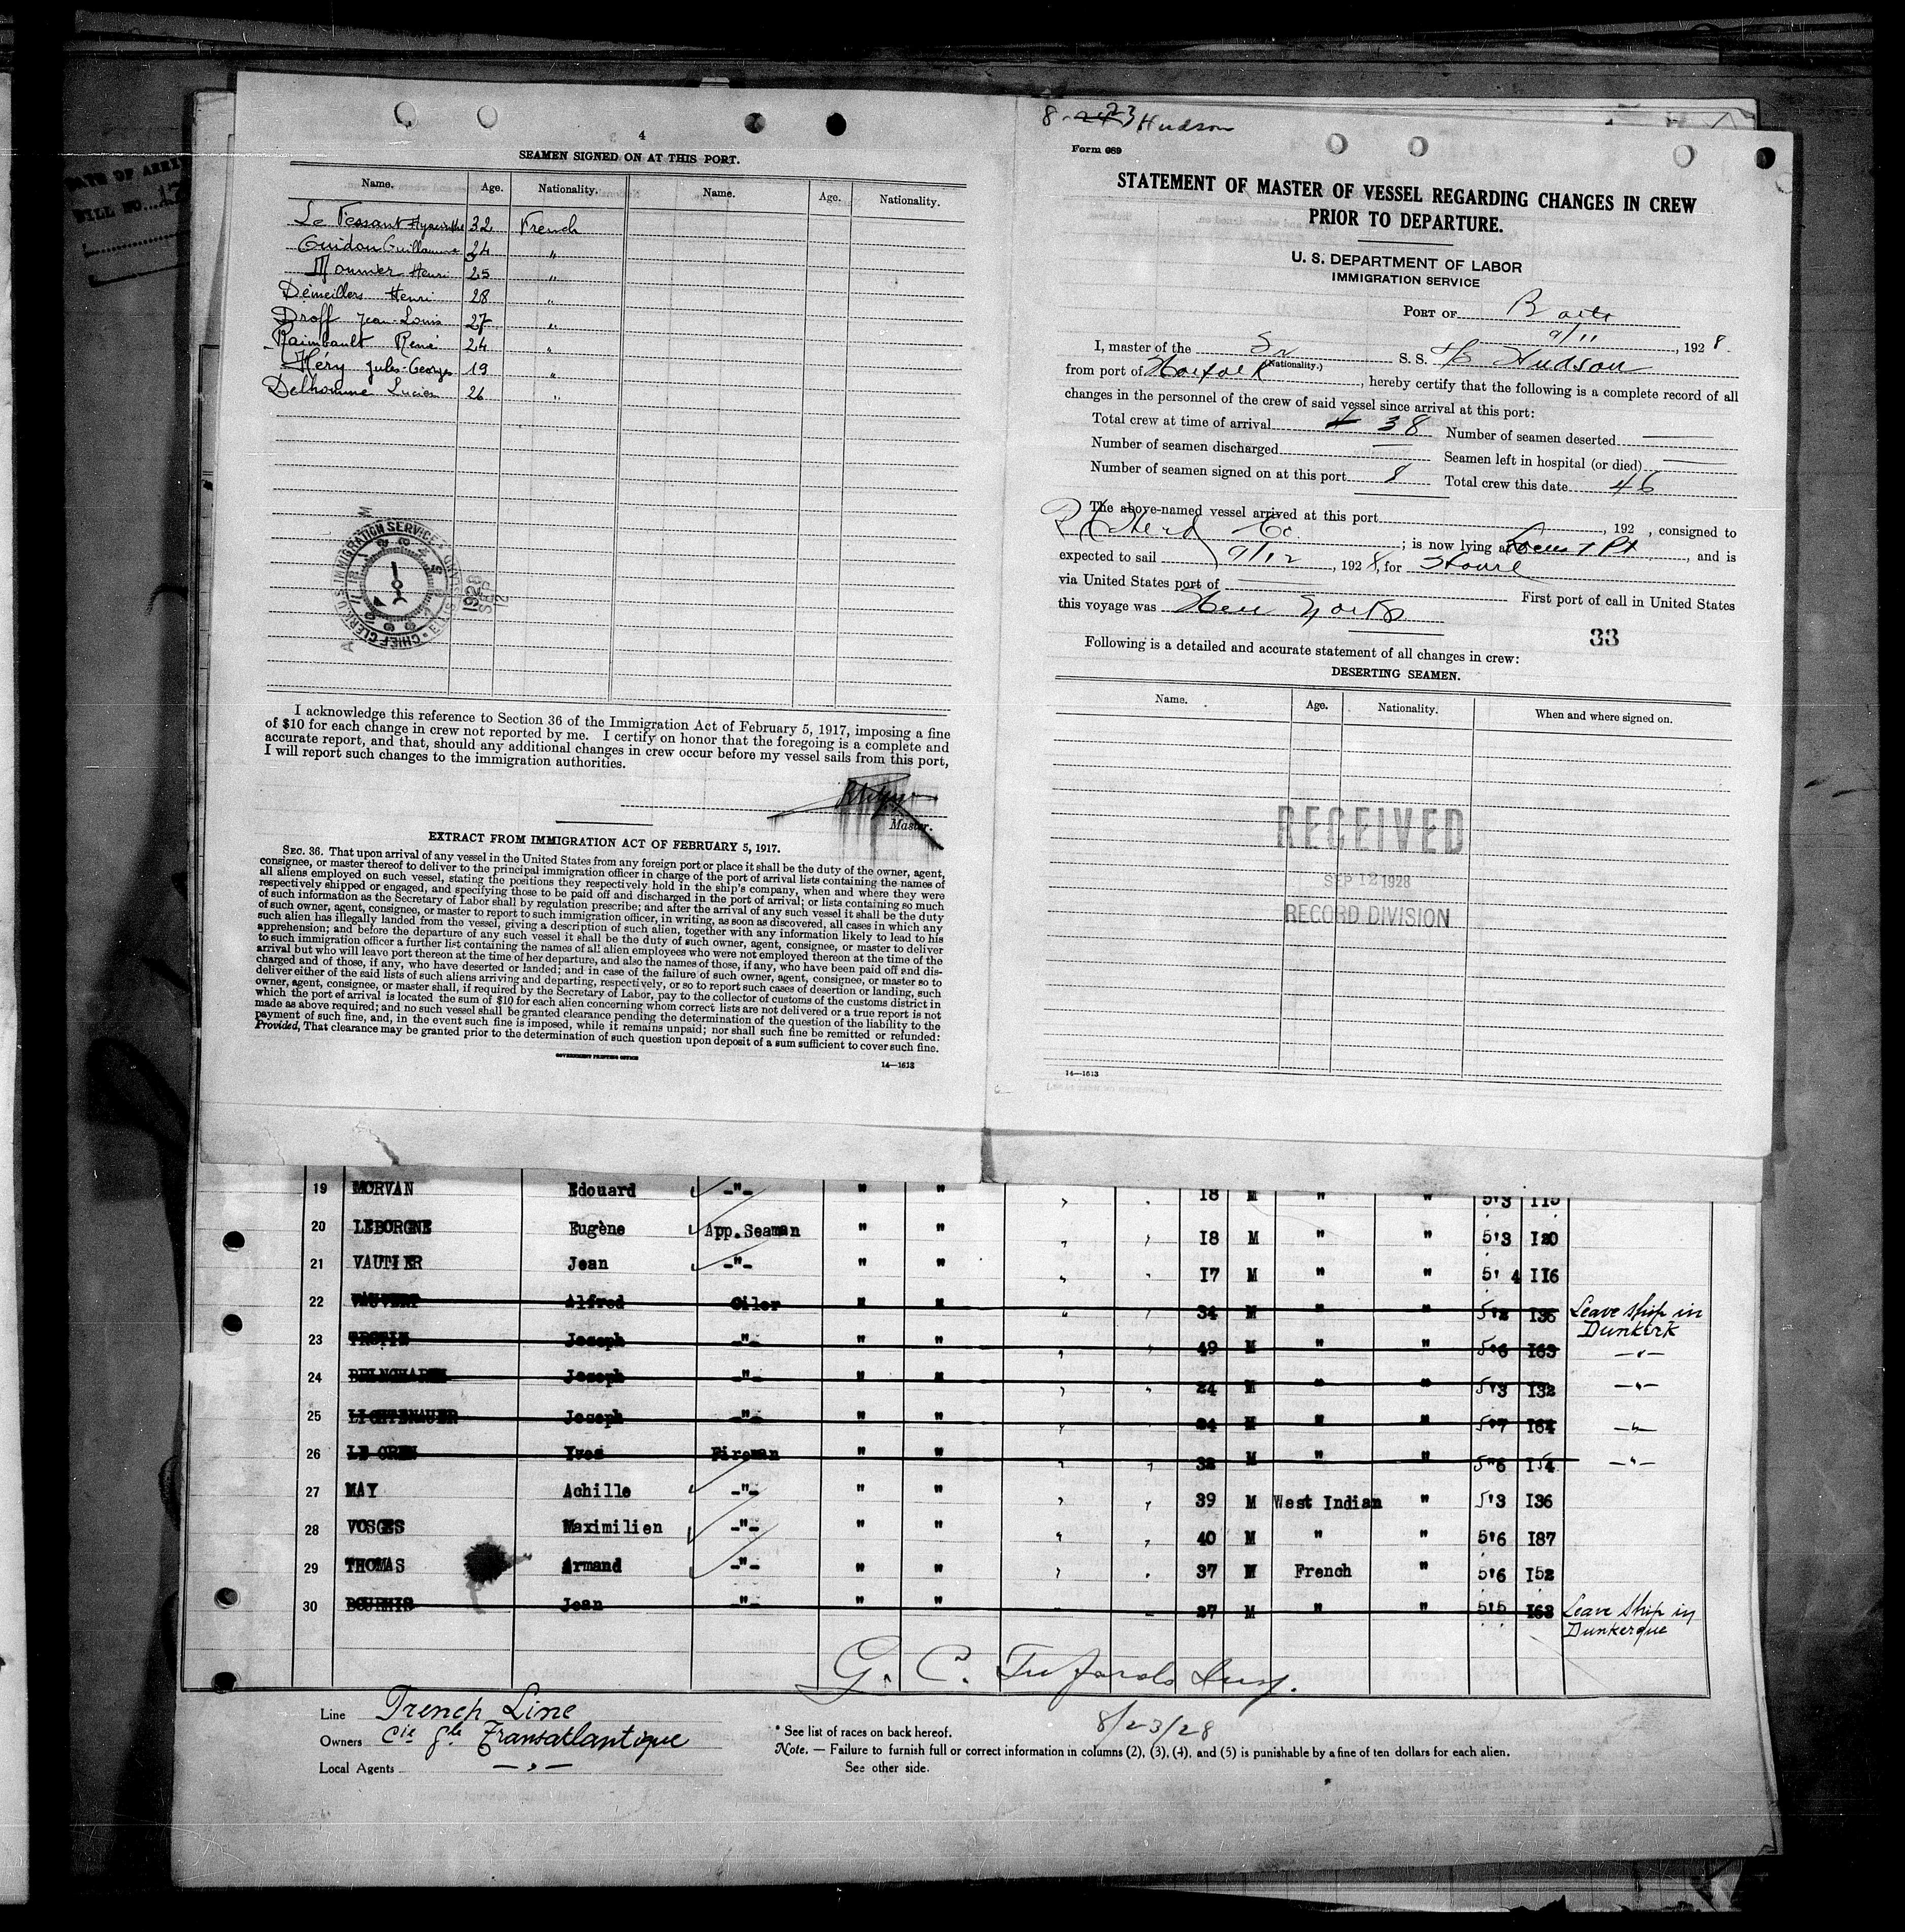 4
SEAMEN SIGNED ON AT THIS PORT.
Name. Age. Nationality. Name. Age. Nationality.
Le Tessant Hyacinthe 32 French
Guidou Guillaume 24 "
Mounier Henri 25 "
Démeillers Henri 28 "
Droff Jean-Louis 27 "
Raimbault René 24 "
Héry Jules-Georges 19 "
Delhomme Lucien 26 "
U.S. IMMIGRATION SERVICE
CHIEF CLERK
1928
SEP
12
I acknowledge this reference to Section 36 of the Immigration Act of February 5, 1917, imposing a fine
of $10 for each change in crew not reported by me. I certify on honor that the foregoing is a complete and
accurate report, and that, should any additional changes in crew occur before my vessel sails from this port,
I will report such changes to the immigration authorities.
Master.
EXTRACT FROM IMMIGRATION ACT OF FEBRUARY 5, 1917.
SEC. 36. That upon arrival of any vessel in the United States from any foreign port or place it shall be the duty of the owner, agent,
consignee, or master thereof to deliver to the principal immigration officer in charge of the port of arrival lists containing the names of
all aliens employed on such vessel, stating the positions they respectively hold in the ship's company, when and where they were
respectively shipped or engaged, and specifying those to be paid off and discharged in the port of arrival; or lists containing so much
of such information as the Secretary of Labor shall by regulation prescribe; and after the arrival of any such vessel it shall be the duty
of such owner, agent, consignee, or master to report to such immigration officer, in writing, as soon as discovered, all cases in which any
such alien has illegally landed from the vessel, giving a description of such alien, together with any information likely to lead to his
apprehension; and before the departure of any such vessel it shall be the duty of such owner, agent, consignee, or master to deliver
to such immigration officer a further list containing the names of all alien employees who were not employed thereon at the time of the
arrival but who will leave port thereon at the time of her departure, and also the names of those, if any, who have been paid off and dis-
charged and of those, if any, who have deserted or landed; and in case of the failure of such owner, agent, consignee, or master so to
deliver either of the said lists of such aliens arriving and departing, respectively, or so to report such cases of desertion or landing, such
owner, agent, consignee, or master shall, if required by the Secretary of Labor, pay to the collector of customs of the customs district in
which the port of arrival is located the sum of $10 for each alien concerning whom correct lists are not delivered or a true report is not
made as above required; and no such vessel shall be granted clearance pending the determination of the question of the liability to the
payment of such fine, and, in the event such fine is imposed, while it remains unpaid; nor shall such fine be remitted or refunded:
Provided, That clearance may be granted prior to the determination of such question upon deposit of a sum sufficient to cover such fine.
GOVERNMENT PRINTING OFFICE
14—1613
8-23 Hudson
Form 689
STATEMENT OF MASTER OF VESSEL REGARDING CHANGES IN CREW
PRIOR TO DEPARTURE.
U. S. DEPARTMENT OF LABOR
IMMIGRATION SERVICE
PORT OF Balto
9/11, 1928.
I, master of the Fr S. S. S/S Hudson
(Nationality.)
from port of Norfolk, hereby certify that the following is a complete record of all
changes in the personnel of the crew of said vessel since arrival at this port:
Total crew at time of arrival 38 Number of seamen deserted —
Number of seamen discharged — Seamen left in hospital (or died) —
Number of seamen signed on at this port 8 Total crew this date 46
The above-named vessel arrived at this port , 192 , consigned to
Herd Co ; is now lying at Locust Pt, and is
expected to sail 9/12, 1928, for Havre
via United States port of — First port of call in United States
this voyage was New York
33
Following is a detailed and accurate statement of all changes in crew:
DESERTING SEAMEN.
Name. Age. Nationality. When and where signed on.
RECEIVED
SEP 12 1928
RECORD DIVISION
14—1613
19 MORVAN Edouard -"- " " 18 M " " 5'3 115
20 LEBORGNE Eugène App.Seaman " " 18 M " " 5'3 120
21 VAUTIER Jean -"- " " 17 M " " 5'4 116
22 VAUVERT Alfred Oiler " " 34 M " " 5'2 136 Leave ship in
Dunkirk
23 TROTIN Joseph -"- " " 49 M " " 5'6 163 -"-
24 Joseph -"- " " 24 M " " 5'3 132 -"-
25 LICHTENAUER Joseph -"- " " 24 M " " 5'7 164 -"-
26 LE OREN Yves Fireman " " 32 M " " 5'6 154 -"-
27 MAY Achille -"- " " 39 M West Indian " 5'3 136
28 VOSGES Maximilien -"- " " 40 M " " 5'6 187
29 THOMAS Armand -"- " " 37 M French " 5'6 152
30 BOURHIS Jean -"- " " 27 M " " 5'5 163 Leave ship in
Dunkerque
G. C. Insp.
8/23/28
Line French Line
Owners Cie Gle Transatlantique
Local Agents -"-
* See list of races on back hereof.
Note. — Failure to furnish full or correct information in columns (2), (3), (4), and (5) is punishable by a fine of ten dollars for each alien.
See other side.